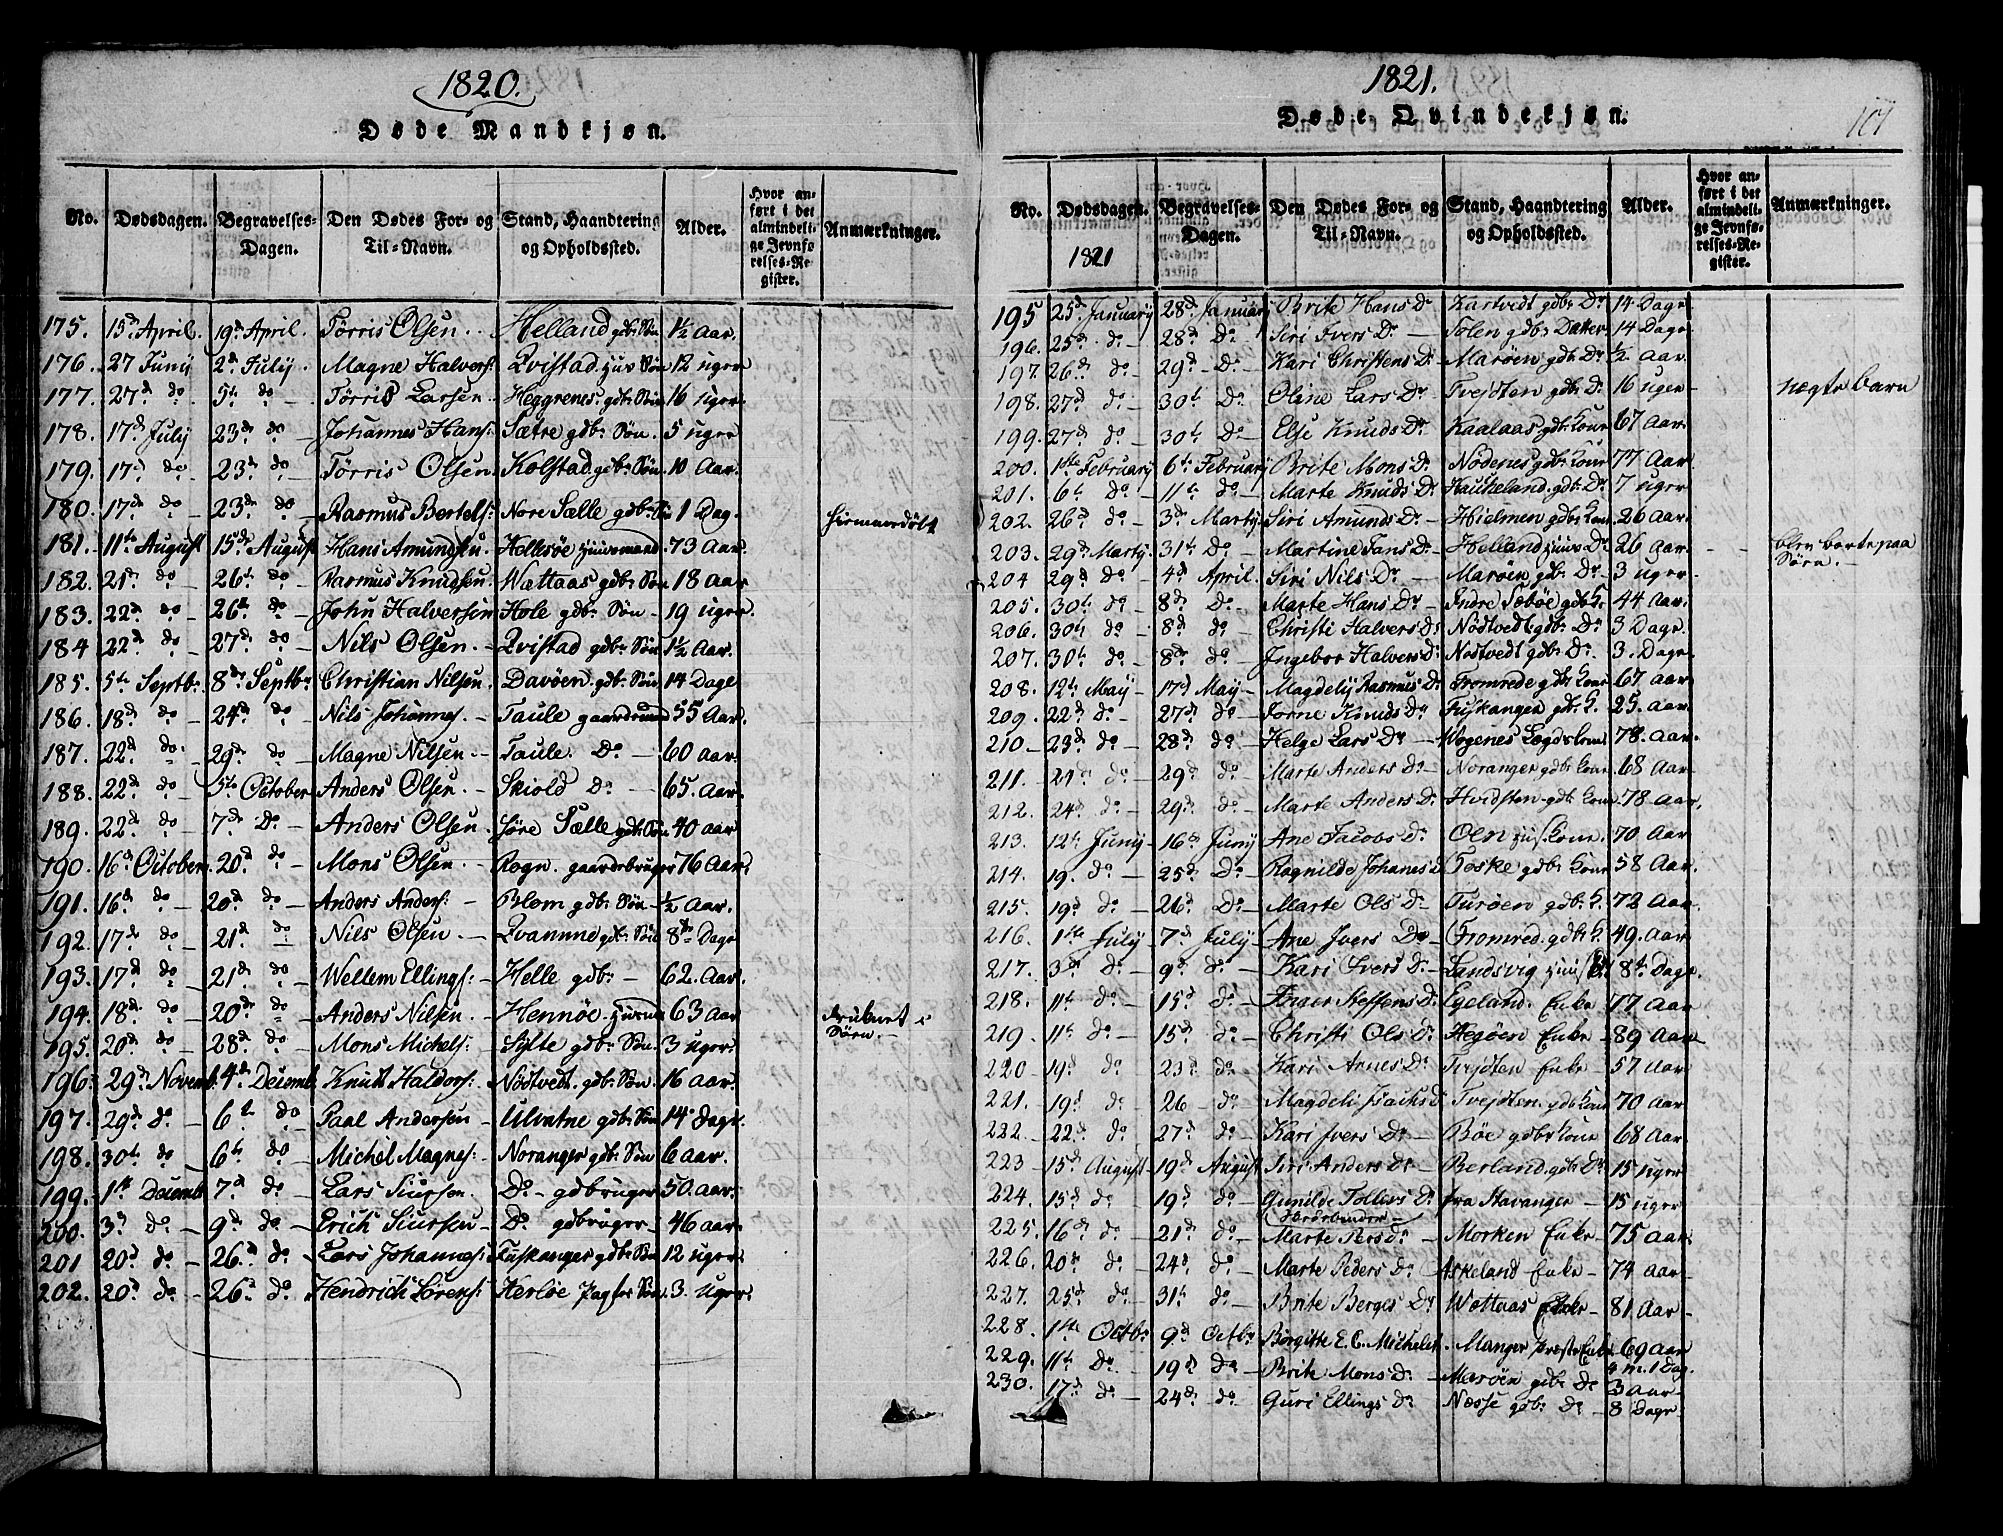 1820.
Døde Mandkjøn.
No. Dødsdagen. Begravelses-Dagen. Den Dødes For- og Til-Navn. Stand, Haandtering og Opholdssted. Alder. Hvor anført i det almindelige Jevnførelses-Register. Anmærkninger.
175. 15d April 19d April. Tørris Olsen Helland gdbr Søn 1½ Aar.
176. 27 Juny 2d July. Magne Halvers: Qvistad. Huus Søn 12 uger
177. 27d do 5te do Tørris Larsen Heggrenes. gdbr Søn 16 uger.
178. 17d July 23d do Johannes Hans: Sætre gdbr Søn. 5 uger
179. 17d do 23d do Tørris Olsen Kolstad. gdbr Søn 10 Aar.
180. 17d do 23d do Rasmus Bertels: Nore Sælle gdbr Søn 1 Dag. hiemmedøbt
181. 11te August 15de August Hans Amundsen Hellesøe Huusmand 73 Aar.
182. 21d do 26te do Rasmus Knudsen Wættaas gdbr Søn 18 Aar
183. 22d do 26te do John Halversen Hole gdbr Søn 19 uger.
184 22d do 27d do Nils Olsen Qvistad gdbr Søn 1½ Aar.
185. 5te Septbr. 8de Septbr. Christian Nilsen Davøen gdbr Søn 14 Dage
186. 18d do 24d do Nils Johannes. Taule gaardmand 55 Aar.
187. 22d do 29d do Magne Nilsen Taule. Do 60 Aar.
188. 22d do 5te October Anders Olsen Skiold Do 65. Aar.
189. 22d do 7de Do Anders Olsen Søre Sælle gdbr Søn 40 Aar
190. 16d October 20d do Mons Olsen Rogn. gaardbruger 76 Aar.
191. 16d do 20d do Anders Anders: Blom gdbr Søn ½ Aar.
192. 17d do 21d do Nils Olsen Qvamme gdbr Søn 8te Dage
193. 17d do 21d do Wellem Ellings: Helle gdbr 62. Aar.
194. 18d do 20d do Anders Nilsen Hennøe. Huusmd 63 Aar druknet i Søen.
195. 20d do 28d do Mons Michels: Sylte gdbr Søn. 3 uger.
196. 29d Novemb. 4de Decemb. Knudt Haldors: Nødtvedt. gdbr Søn 16 Aar.
197. 29d do 6te do Paal Andersen Ulvatne gdbr Søn 14 Dage.
198. 30te do 6te do Michel Magnes: Noranger gdbr Søn 6 Aar.
199. 1te Decemb. 7de do Lars Siursen Do gdbruger 50. Aar.
200. 3d do 9d do Erich Siursen Do gdbruger 46 Aar
201 20d do 26d do Lars Johannes: Fuskanger gdbr Søn 12 uger.
202. 20d do 26d do Hendrich Sørens: Herløe Søn 3 uger.
203.
1821.
Døde Qvindekjøn.
107
No. Dødsdagen. Begravelses-Dagen. Den Dødes For- og Til-Navn. Stand, Haandtering og Opholdssted. Alder. Hvor anført i det almindelige Jevnførelses-Register. Anmærkninger.
1821
195 25d January 28d January Brite Hans Dr Kartvedt gdbr Dr 14 Dage
196. 25d do 28d Do Siri Ivers Dr Solen gdbr Datter 14 Dage
197. 26d do 29d Do Kari Christens Dr Marøen gdbr Dr ½ Aar
198. 27d do 30te Do Oline Lars Dr Tvejdten gdbr Dr 16 uger ægte Barn
199. 27d do 30te Do Else Knuds Dr Kaalaas gdbr Kone 67 Aar.
200. 1te February 6te February Brite Mons Dr Nødenes gdbr Kone 77 Aar
201. 6te do 11te Do Marte Knuds Dr Haukeland. gdbr Dr 7 uger
202. 26d do 3de Marty Siri Amunds Dr Hielmen gdbr Kone 26 Aar
203. 29d Marty. 31te Do Martine Dr Helland Huus Dr 26 Aar. blev borte paa Søen.
204 29d do 4d April. Siri Nils Dr Marøen gdbr Dr 3 uger
205. 30te do 8d Do Marte Hans Dr Indre Sæbøe gdbr K. 44 Aar.
206. 30te do 8d do Christi Halvers Dr Nødtvedt. gdbr Dr 3 Dage.
207. 30te do 8de do Ingebor Halvers Dr Nødtvedt gdbr Dr 3. Dage
208. 12te May 17d May Magdely Rasmus Dr Fromrede gdbr Kone 67 Aar
209. 22d do 27d do Jorne Knuds Dr Fuskanger gdbr K. 25. Aar
210 23d do 28d do Helge Lars Dr Wogenes Lægdslem. 78. Aar.
211. 21d do 29d do Marte Anders Dr Noranger gdbr Kone 68 Aar
212. 24d do 29d do Marte Anders Dr Hvidsten gdbr Kone 78 Aar.
213. 12te Juny 16d Juny Ane Jacobs Dr Olen Huus Kone. 70 Aar
214. 19. do 25d Do Ragnilde Johanes D Toske gdbr Kone 58 Aar.
215. 19d do 26d Do Marte Ols Dr Turøen gdbr K. 72 Aar
216. 1te July 7d July Ane Ivers Dr Fromred. gdbr K. 49. Aar
217. 3d do 9d do Kari Ivers Dr Landsvig Huus 8te Dage.
218. 11te do 15d do Inger Steffens D. Egeland. Enke 77 Aar
219. 11te do 15d do Christi Ols Dr Hegøen Enke 89 Aar
220 19d do 23d do Kari Arnes Dr Tvejdten Enke 57 Aar
221. 19d do 26 do Magdeli Isachs D Tvejdten. gdbr Kone 70 Aar
222. 22d do 27d do Kari Ivers Dr Bøe gdbr Kone 68 Aar
223 15d August 19d August Siri Anders Dr Berland. gdbr Dr 15 uger
224. 15d do 19d do Gunilde Tollevs Dr fra Stavanger 15 uger
225. 16d do 21d do Marte Pers Dr Morken Enke 75 Aar
226. 20de do 24d. do Marte Peders Dr Askeland Enke 74 Aar
227. 25d do 31te do Brite Berges Dr Wættaas Enke 81 Aar
228. 1te Octbr 9d Octbr Birgitte E. C. Michelet. Manger Præste Enke 69 Aar 4 m. 1 Dag.
229. 11te Do 19d do Brite Mons Dr Marøen gdbr Dr 3 Aar
230. 17d do 24d do Guri Ellings Dr Næsse gdbr Dr 8 Dage